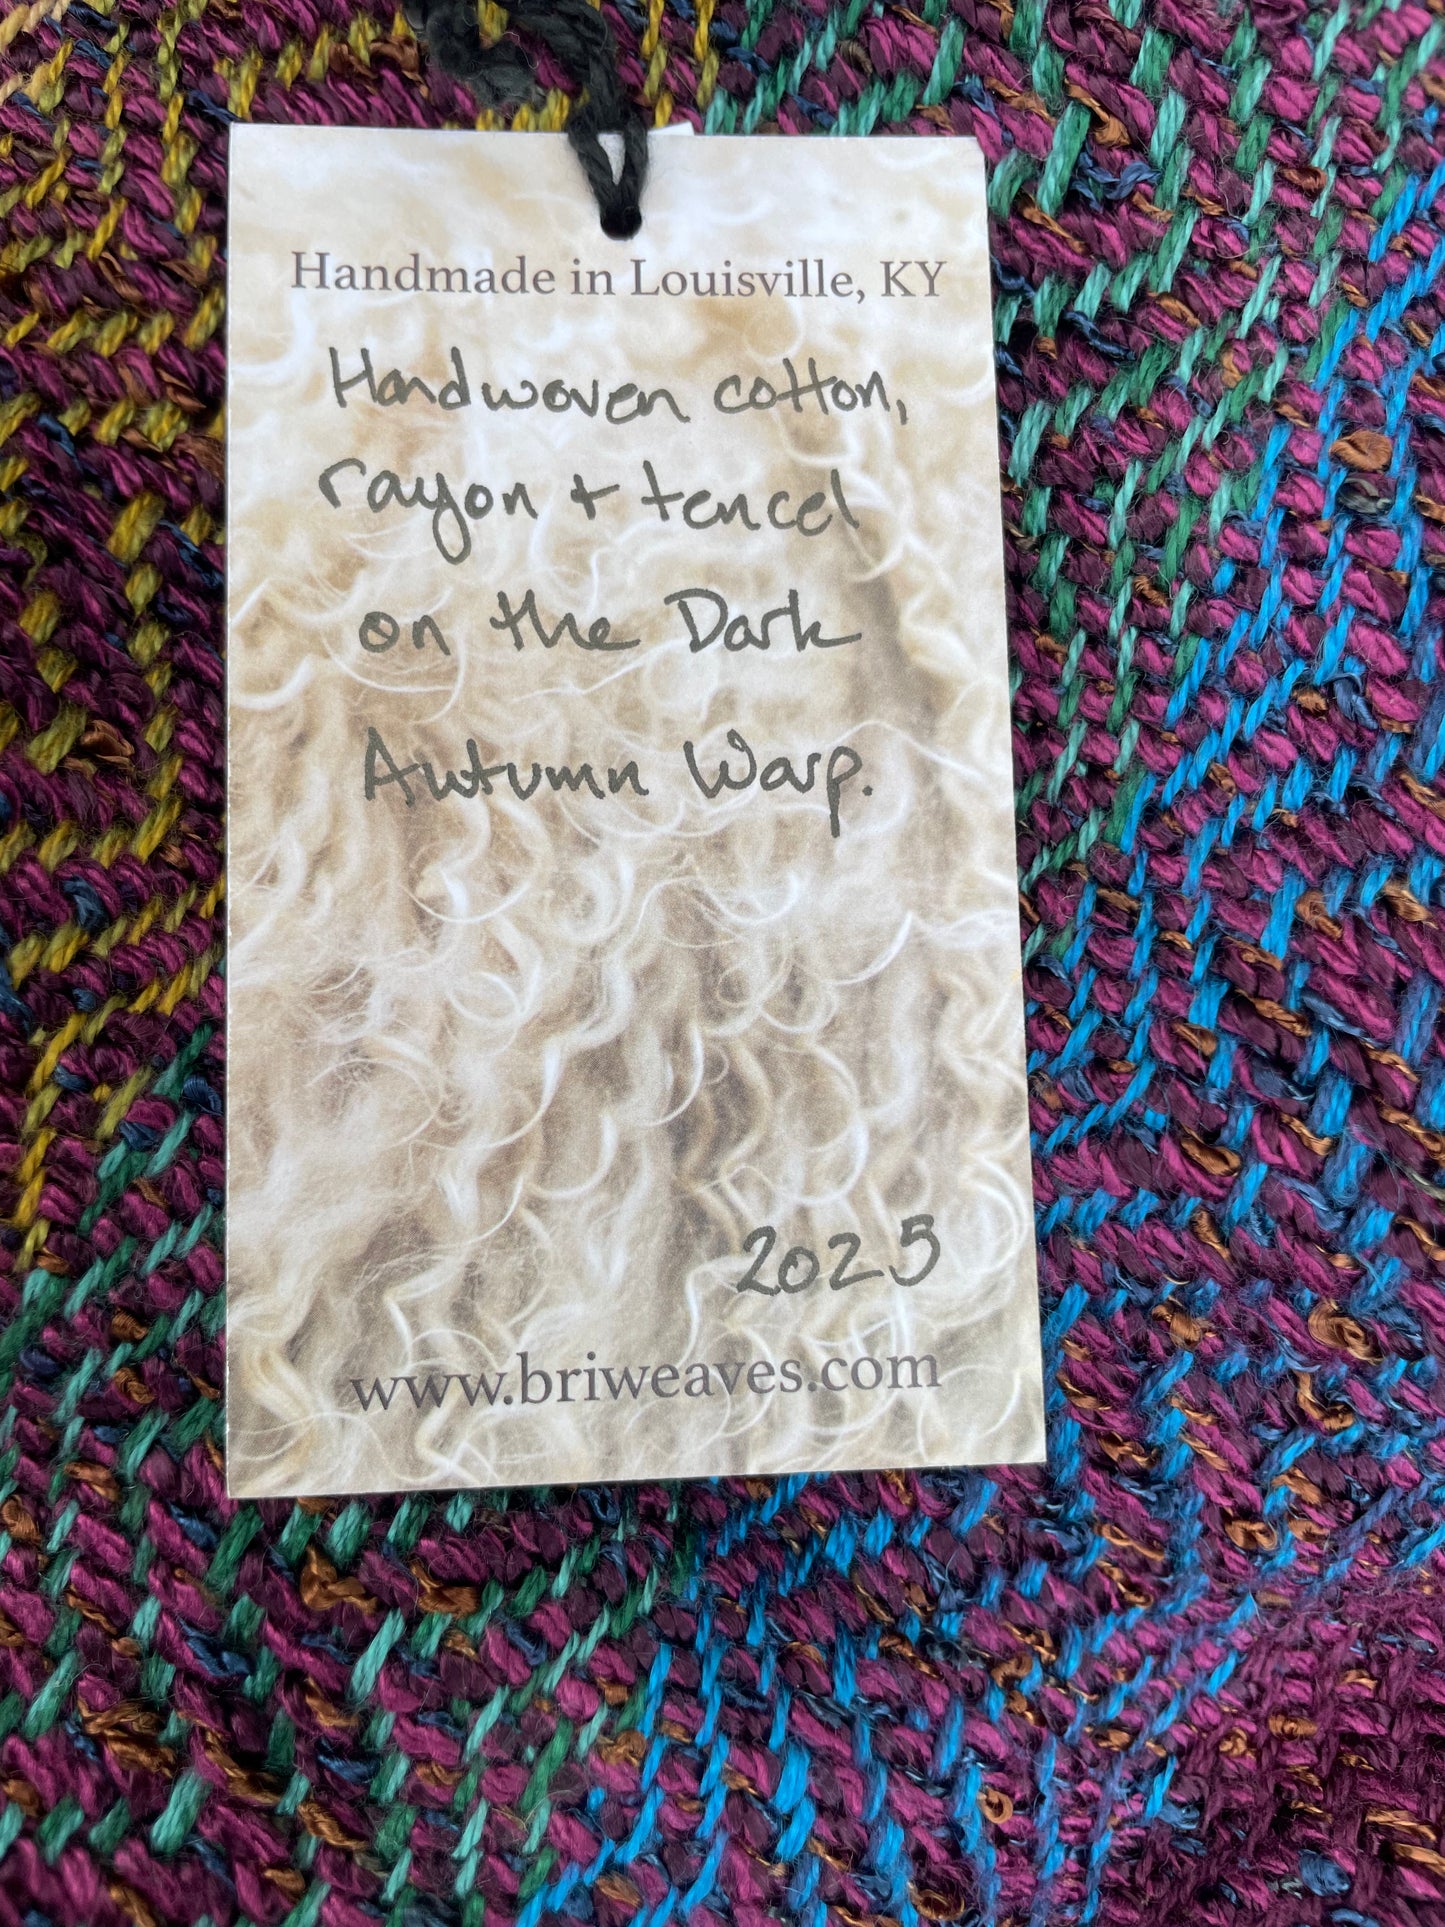 Handmade in Louisville, KY
Handwoven cotton,
rayon + tencel
on the Dark
Autumn Warp.
2025
www.briweaves.com